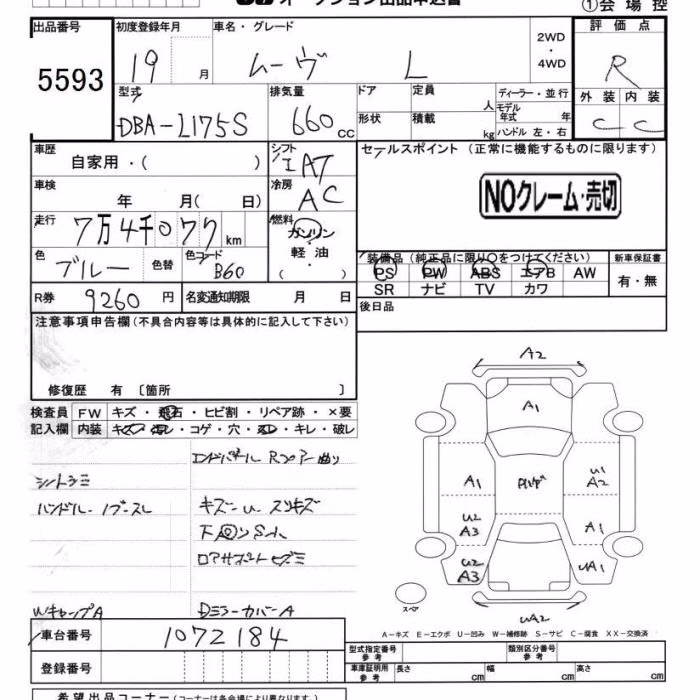 オークション出品申込書
①会場控
出品番号
5593
初度登録年月
19 月
車名・グレード
ムーヴ L
2WD
・
4WD
評価点
R
外装 内装
C C
型式
DBA-L175S
排気量
660 cc
ドア
形状
定員
人
積載
kg
ディーラー・並行
モデル年式 年
ハンドル 左・右
車歴
自家用・( )
シフト
IAT
車検
年 月( 日)
冷房
AC
走行
7万4千077 km
燃料
ガソリン
・
軽油
( )
色
ブルー
色替
色コード
B60
R券
9260 円
名変通知期限 月 日
セールスポイント (正常に機能するものに限ります)
NOクレーム・売切
装備品(純正品に限り○をつけてください)
PS PW ABS エアB AW
SR ナビ TV カワ
新車保証書
有・無
後日品
注意事項申告欄(不具合内容等は具体的に記入して下さい)
修復歴 有〔箇所 〕
検査員記入欄
FW キズ・飛石・ヒビ割・リペア跡・×要
内装 キズ・汚レ・コゲ・穴・スレ・キレ・破レ
エンドパネル Rフロアー曲り
シートシミ
ハンドル・ノブスレ
キズ-u スリキズ
下回りSム
ロアサポートヒズミ
Wキャップ A
DミラーカバーA
A2
A1
A1
U2
A3
U2
A3
U1
A2
A1
UA1
UA2
スペア
A-キズ E-エクボ U-凹み W-補修跡 S-サビ C-腐食 XX-交換済
車台番号
1072184
登録番号
型式指定番号
参考
類別区分番号
参考
車庫証明用
参考
長さ cm
幅 cm
高さ cm
希望出品コーナー(コーナーは各会場により異なります。)